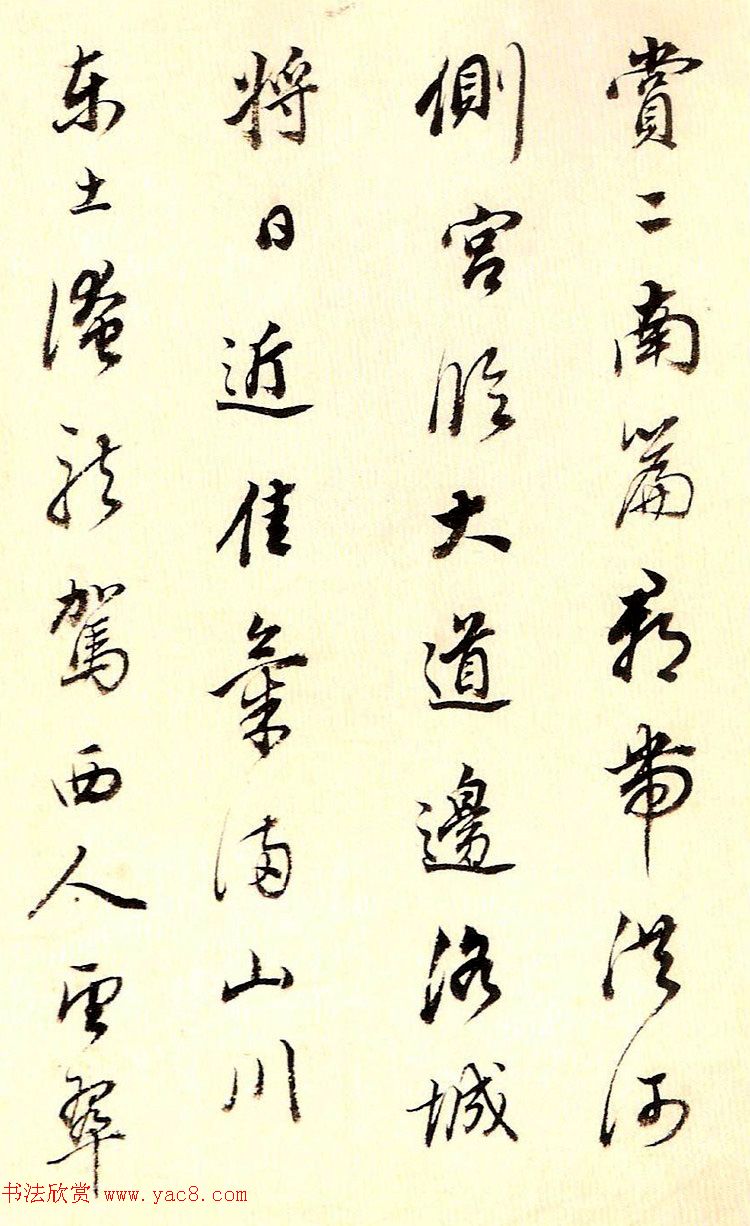 賞二南篇郡帶洪河
側宮臨大道邊洛城
將日近佳氣滿山川
東土淹龍駕西人望翠
书法欣赏 www.yac8.com